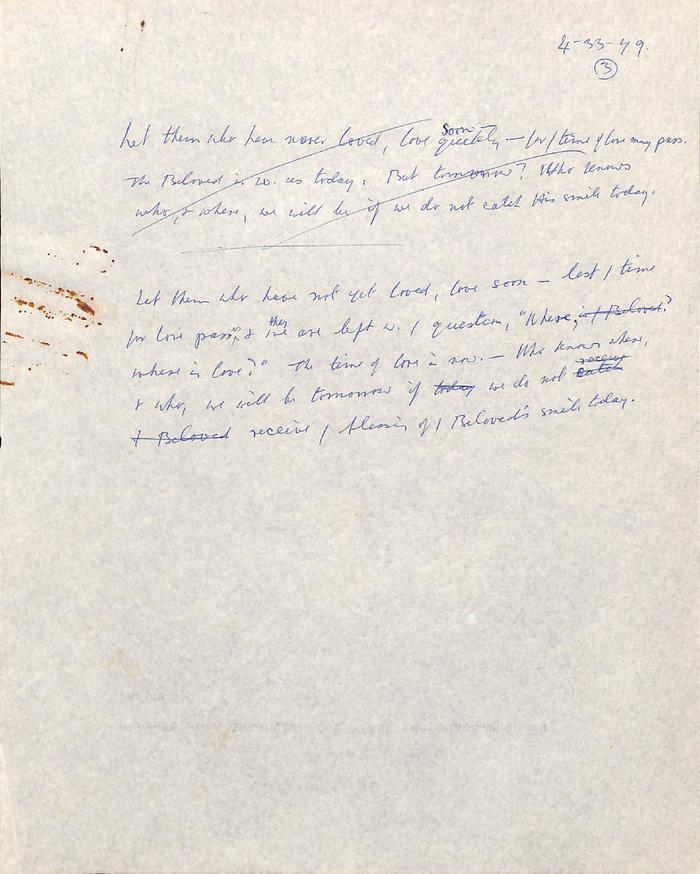 4-33-49.
3
Let them who have never loved, love quickly soon — for / time of love may pass.
The Beloved is w. us today. But tomorrow? Who knows
who, & where, we will be if we do not catch His smile today.
Let them who have not yet loved, love soon — lest / time
for love pass, & we they are left w. / question, "Where is / Beloved?
where is love?" The time of love is now. — Who knows where,
& who, we will be tomorrow if today we do not catch receive
/ Beloved receive / blessing of / Beloved's smile today.